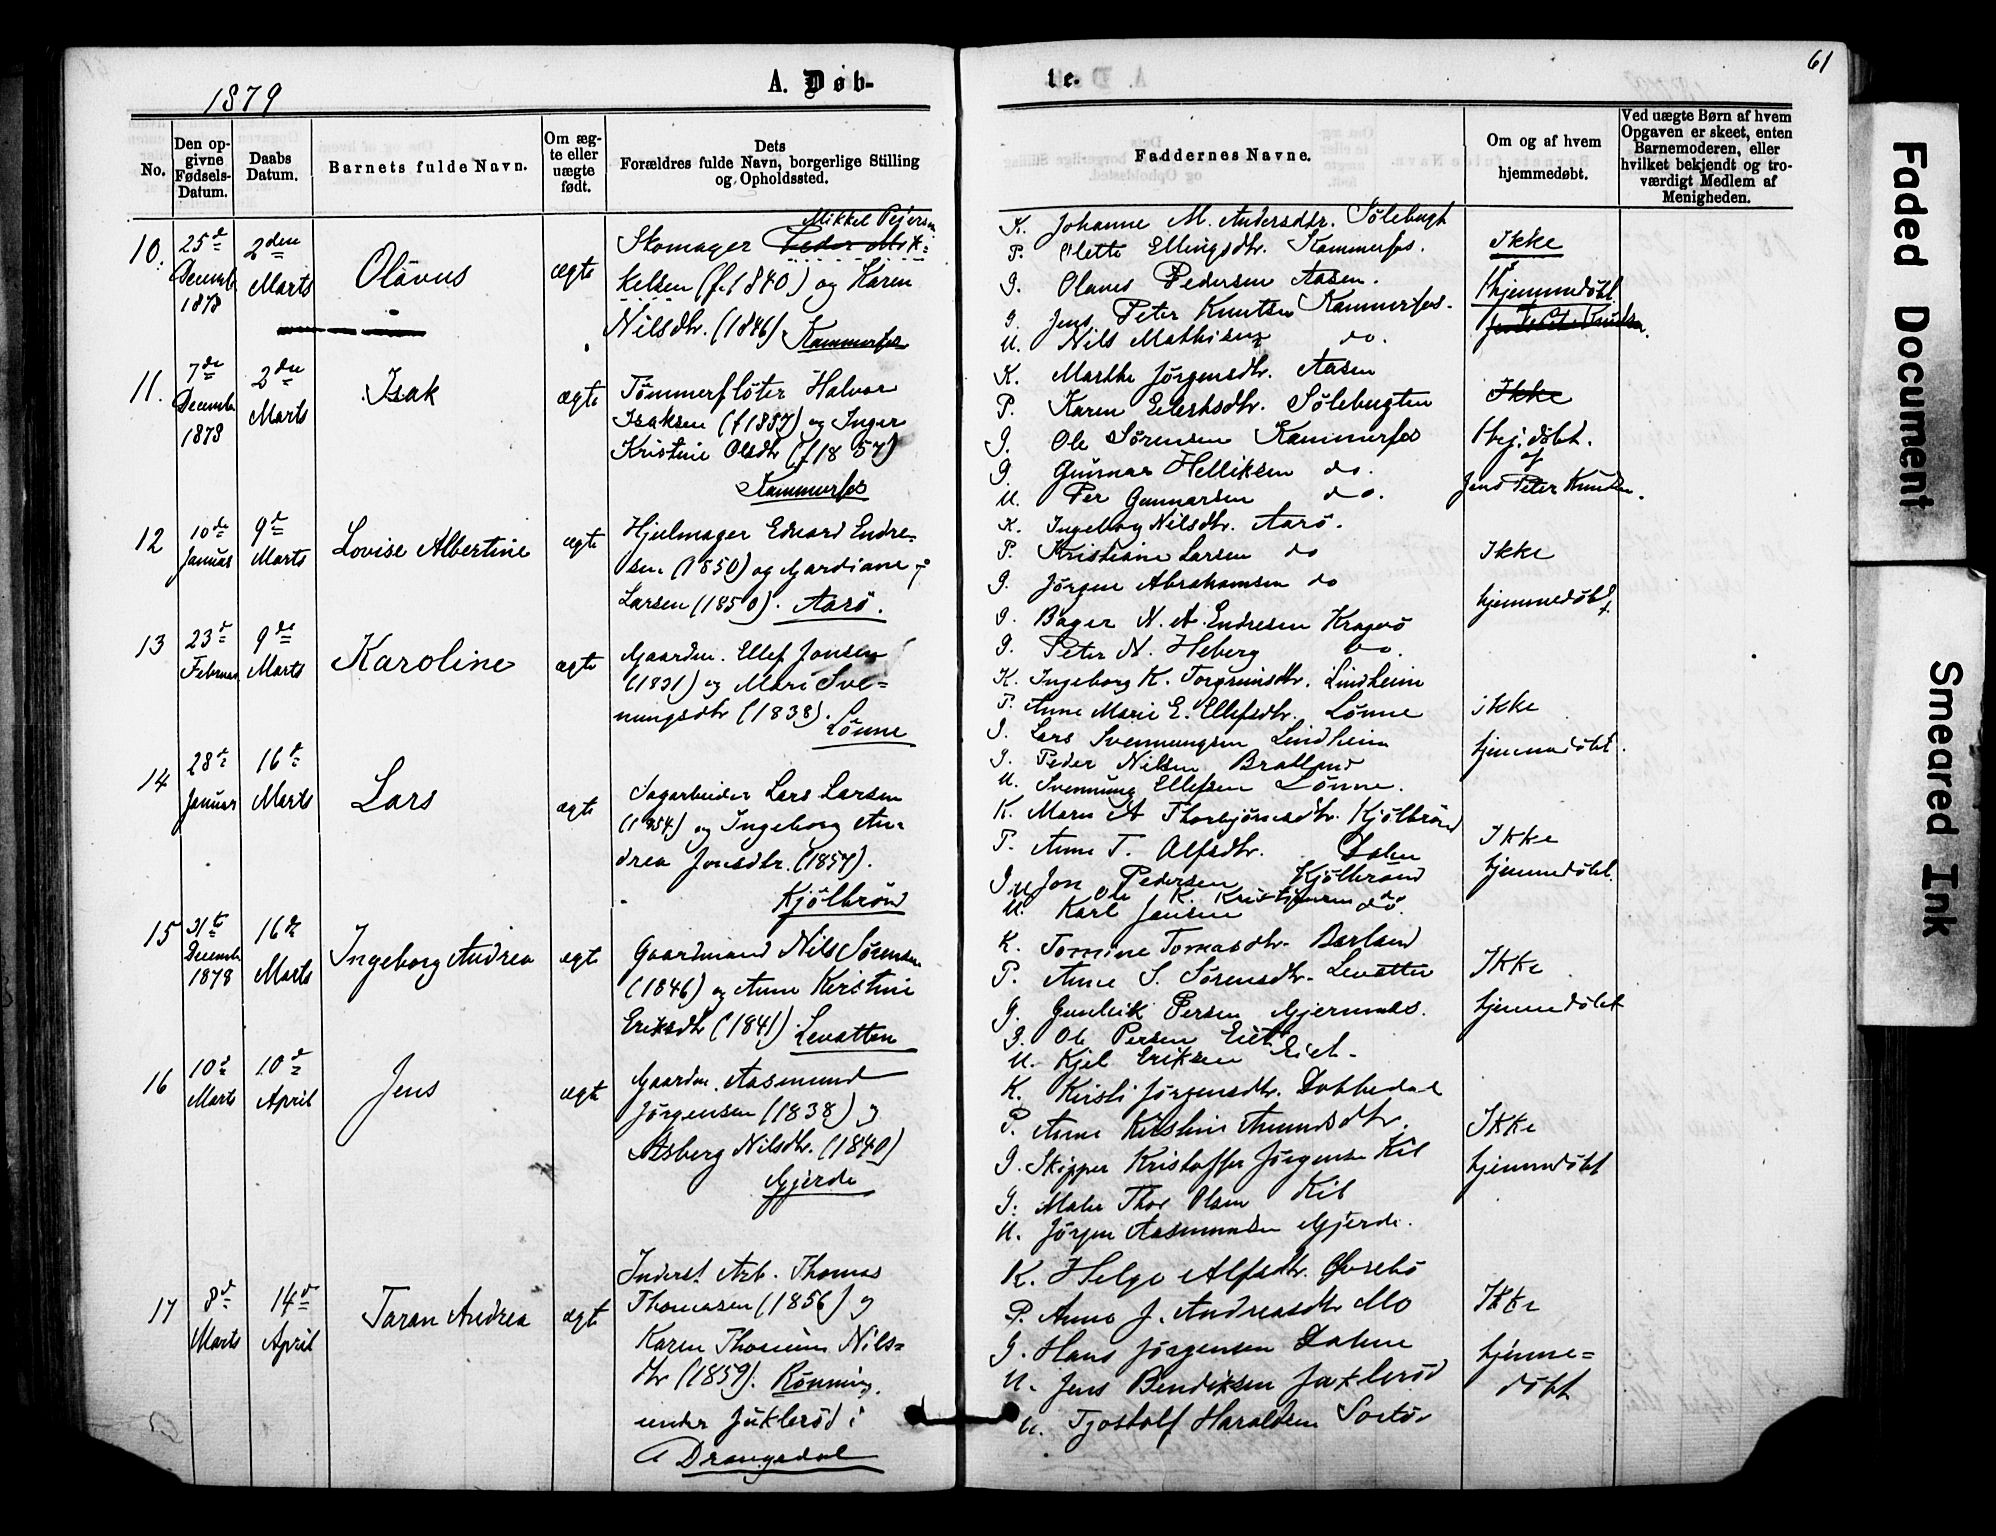 61
1879
A. Døb-
te.
No.
Den op-
givne
Fødsels-
Datum.
Daabs
Datum.
Barnets fulde Navn.
Om æg-
te eller
uægte
født.
Dets
Forældres fulde Navn, borgerlige Stilling
og Opholdssted.
Faddernes Navne.
Om og af hvem
hjemmedøbt.
Ved uægte Børn af hvem
Opgaven er skeet, enten
Barnemoderen, eller
hvilket bekjendt og tro-
værdigt Medlem af
Menigheden.
10.
25de
Decemb.
1878
2den
Marts
Olavus
ægte
Mikkel Pejersen
Skomager Peder Mik-
kelsen (f. 1840) og Karen
Nilsdtr. (1846). Kammerfos
K. Johanne M. Andersdtr. Sølebugt
P. Olette Ellingsdtr. Kammerfos.
G. Olaves Pedersen Aasen.
G. Jens Peter Knutsen Kammerfos.
U. Nils Mathisen do.
Ikke
hjemmedøbt
Jens Peter Knudsen.
11.
7de
Decemb.
1878
2den
Marts
Isak
ægte
Tømmerfløter Halvor
Isaksen (f 1857) og Inger
Kristine Olsdtr (f 1857)
Kammerfos
K. Marthe Jørgensdtr. Aasen
P. Karen Eilertsdtr. Sølebugten
G. Ole Sørensen Kammerfos
G. Gunnar Helliksen do.
U. Per Gunnarsen do.
Ikke
hj. døbt.
af
Jens Peter Knudsen.
12
10de
Januar
9de
Marts
Lovise Albertine
ægte
Hjulmager Edvard Endre-
sen (1850) og Gardiane
Larsen (1850). Aarø.
K. Ingeborg Nilsdtr. Aarø.
P. Kristiane Larsen do
G. Jørgen Abrahamsen do
G. Bager N. A. Endresen Kragerø
G. Peter N. Heberg do.
Ikke
hjemmedøbt
13
23de
Februar
9de
Marts
Karoline
ægte
Gaardm. Ellef Jonsen
(1831) og Mari Sve-
nungsdtr (1838).
Lønne
K. Ingeborg K. Torgrimsdtr. Lindheim
P. Anne Marie E. Ellefsdtr. Lønne
G. Lars Svennungsen Lindheim
G. Peder Nilsen Bratland
U. Svennung Ellefsen Lønne.
ikke
hjemmedøbt.
14
28de
Januar
16de
Marts
Lars
ægte
Sagarbeider Lars Larsen
(1854) og Ingeborg An-
drea Jonsdtr. (1857).
Kjølbrønd
K. Maren A Thorbjørnsdtr. Kjølbrønd
P. Anne T. Alfsdtr. Dalen
G. Jon Pedersen Kjølbrønd
U. Ole K. Kristjansen do
U. Karl Jansen do.
Ikke
hjemmedøbt.
15
31te
Decemb.
1878
16de
Marts
Ingeborg Andrea
ægte
Gaardmand Nils Sørensen
(1846) og Anne Kirstine
Eriksdtr (1841) Levatten
K. Tomine Tomasdtr. Barland
P. Anne S. Sørensdtr. Levatten
G. Gunleik Persen Gjernæs.
G. Ole Persen Eiet
U. Kjel Eriksen Eiet.
Ikke
hjemmedøbt
16
10de
Marts
10de
April
Jens
ægte
Gaardm. Aasmund
Jørgensen (1838) og
Asberg Nilsdtr. (1840)
Gjerde
K. Kirsti Jørgensdtr. Dobbedal
P. Anne Kirstine Amundsdtr.
G. Skipper Kristoffer Jørgensen Kil
G. Maler Thor Olsen Kil
U. Jørgen Aasmundsen Gjerde.
Ikke
hjemmedøbt
17
8de
Marts
14de
April
Taran Andrea
ægte
Inderst Arb. Thomas
Thomasen (1856) og
Karen Thomine Nils-
dtr (1859). Rønning,
under Juklerød i
Drangedal
K. Helge Alfsdtr. Øvsebø
P. Anne J. Andreasdtr Mo
G. Hans Jørgensen Dalene
U. Jens Bendiksen Juklerød
U. Tjostolf Haraldsen Sortø
Ikke
hjemme-
døbt
Faded Document
Smeared Ink